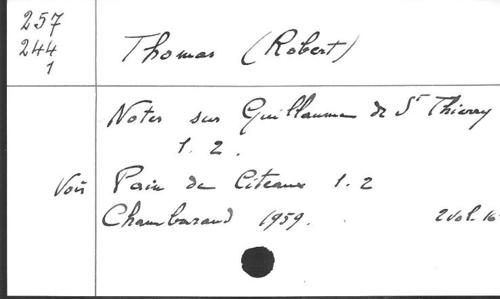 257
244
1
Thomas (Robert)
Notes sur Guillaume de St Thierry
1. 2.
Voir Pain de Citeaux 1. 2
Chambarand 1959. 2 vol. 16